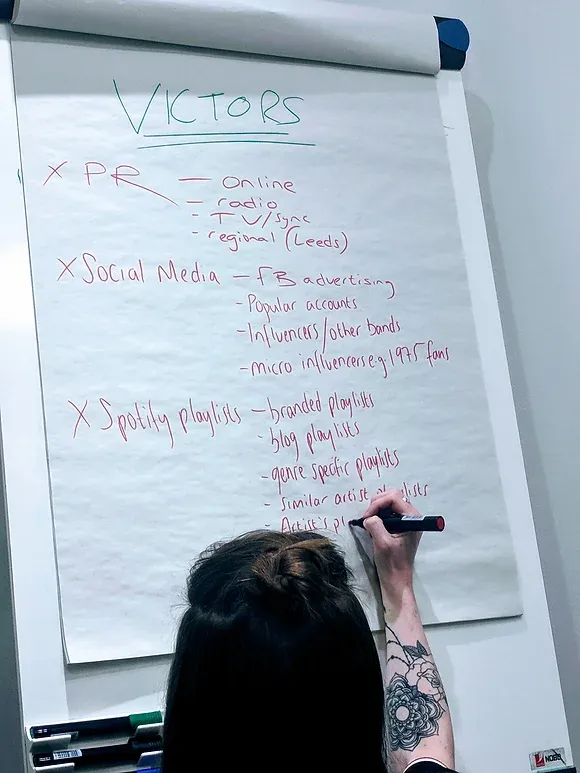 VICTORS
X PR — online
- radio
- TV/sync
- regional (Leeds)
X Social Media — FB advertising
- Popular accounts
- Influencers/other bands
- micro influencers e.g. 1975 fans
X Spotify playlists — branded playlists
- blog playlists
- genre specific playlists
- similar artist playlists
- Artist's pl
NOBO